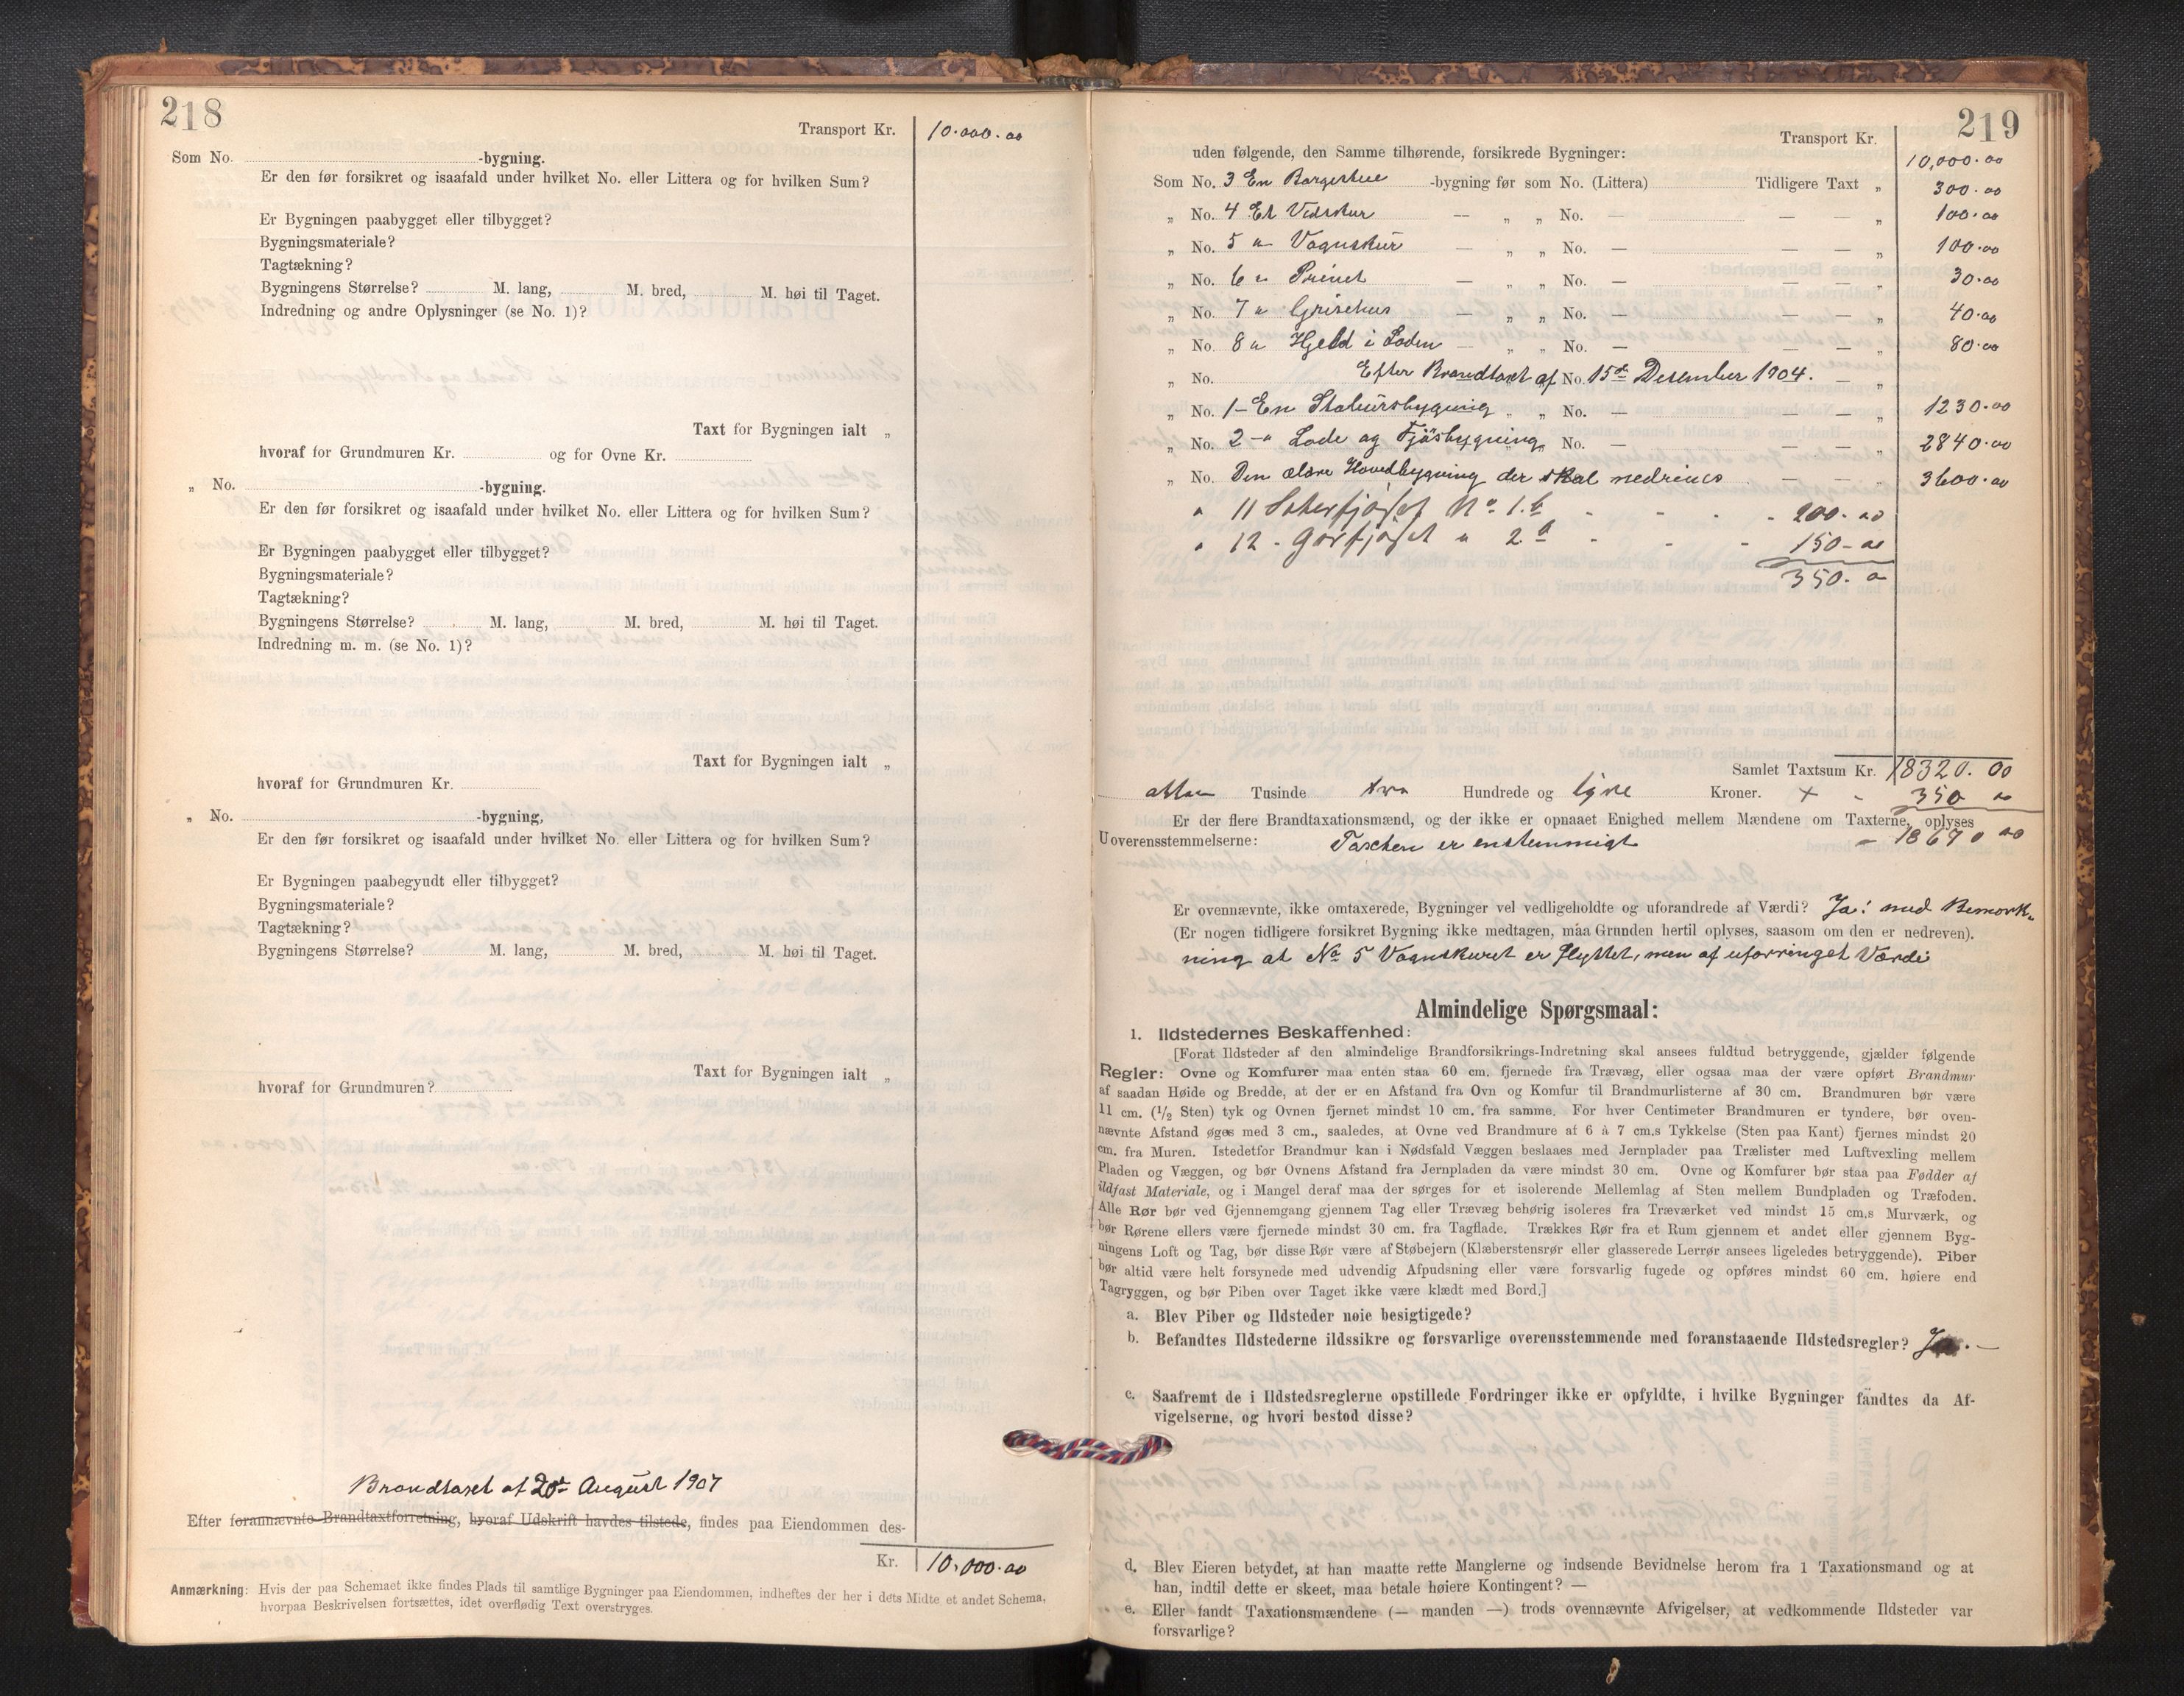 218
Transport Kr. 10.000.00
Som No. -bygning.
Er den før forsikret og isaafald under hvilket No. eller Littera og for hvilken Sum?
Er Bygningen paabygget eller tilbygget?
Bygningsmateriale?
Tagtækning?
Bygningens Størrelse? M. lang, M. bred, M. høi til Taget.
Indredning og andre Oplysninger (se No. 1)?
Taxt for Bygningen ialt „
hvoraf for Grundmuren Kr. og for Ovne Kr.
„ No. -bygning.
Er den før forsikret og isaafald under hvilket No. eller Littera og for hvilken Sum?
Er Bygningen paabygget eller tilbygget?
Bygningsmateriale?
Tagtækning?
Bygningens Størrelse? M. lang, M. bred, M. høi til Taget.
Indredning m. m. (se No. 1)?
Taxt for Bygningen ialt „
hvoraf for Grundmuren Kr.
„ No. -bygning,
Er den før forsikret og isaafald under hvilket No. eller Littera og for hvilken Sum?
Er Bygningen paabegyudt eller tilbygget?
Bygningsmateriale?
Tagtækning?
Bygningens Størrelse? M. lang, M. bred, M. høi til Taget.
Taxt for Bygningen ialt „
hvoraf for Grundmuren?
Brandtaxt af 20de August 1907
Efter forannævnte Brandtaxtforretning, hvoraf Udskrift havdes tilstede, findes paa Eiendommen des-
Kr. 10,000.00
Anmærkning: Hvis der paa Schemaet ikke findes Plads til samtlige Bygninger paa Eiendommen, indheftes der her i dets Midte et andet Schema,
hvorpaa Beskrivelsen fortsættes, idet overflødig Text overstryges.
219
Transport Kr. 10,000.00
uden følgende, den Samme tilhørende, forsikrede Bygninger:
Som No. 3 En Borgestue -bygning før som No. (Littera) Tidligere Taxt „ 300.00
„ No. 4 Et Vedskur — „ „ No. — — — „ 100.00
„ No. 5 „ Vognskur — „ „ No. — — — „ 100.00
„ No. 6 „ Privet — „ „ No. — — — „ 30.00
„ No. 7 „ Grisehus — „ „ No. — — — „ 40.00
„ No. 8 „ Hjeld i Loden — „ „ No. — — — „ 80.00
„ No. Efter Brandtaxt af No. 15de Desember 1904. — „
„ No. 1 - En Stabursbygning „ „ No. — — — „ 1230.00
„ No. 2 - „ Lode og Fjösbygning „ No. — — — „ 2840.00
„ No. Den ældre Hovedbygning der skal nedrives — — „ 3600.00
„ 11 No. 1.b - - - - 200.00
„ 12 - „ 2.d - - - 150-00
350.00
Samlet Taxtsum Kr. 18320.00
atten Tusinde tre Hundrede og tyve Kroner. + - 350 00
Er der flere Brandtaxationsmænd, og der ikke er opnaaet Enighed mellem Mændene om Taxterne, oplyses
Uoverensstemmelserne: Taxten er enstemmigt - 18670 00
Er ovennævnte, ikke omtaxerede, Bygninger vel vedligeholdte og uforandrede af Værdi? Ja! med Bemærk-
(Er nogen tidligere forsikret Bygning ikke medtagen, maa Grunden hertil oplyses, saasom om den er nedreven).
ning at No 5 Vognskuret er flyttet, men af uforringet Værdi
Almindelige Spørgsmaal:
1. Ildstedernes Beskaffenhed:
[Forat Ildsteder af den almindelige Brandforsikrings-Indretning skal ansees fuldtud betryggende, gjælder følgende
Regler: Ovne og Komfurer maa enten staa 60 cm. fjernede fra Trævæg, eller ogsaa maa der være opført Brandmur
af saadan Høide og Bredde, at der er en Afstand fra Ovn og Komfur til Brandmurlisterne af 30 cm. Brandmuren bør være
11 cm. (1/2 Sten) tyk og Ovnen fjernet mindst 10 cm. fra samme. For hver Centimeter Brandmuren er tyndere, bør oven-
nævnte Afstand øges med 3 cm., saaledes, at Ovne ved Brandmure af 6 à 7 cm.s Tykkelse (Sten paa Kant) fjernes mindst 20
cm. fra Muren. Istedetfor Brandmur kan i Nødsfald Væggen beslaaes med Jernplader paa Trælister med Luftvexling mellem
Pladen og Væggen, og bør Ovnens Afstand fra Jernpladen da være mindst 30 cm. Ovne og Komfurer bør staa paa Fødder af
ildfast Materiale, og i Mangel deraf maa der sørges for et isolerende Mellemlag af Sten mellem Bundpladen og Træfoden.
Alle Rør bør ved Gjennemgang gjennem Tag eller Trævæg behørig isoleres fra Træværket ved mindst 15 cm.s Murværk, og
bør Rørene ellers være fjernede mindst 30 cm. fra Tagflade. Trækkes Rør fra et Rum gjennem et andet eller gjennem Byg-
ningens Loft og Tag, bør disse Rør være af Støbejern (Klæberstensrør eller glasserede Lerrør ansees ligeledes betryggende). Piber
bør altid være helt forsynede med udvendig Afpudsning eller være forsvarlig fugede og opføres mindst 60 cm. høiere end
Tagryggen, og bør Piben over Taget ikke være klædt med Bord.]
a. Blev Piber og Ildsteder nøie besigtigede?
b. Befandtes Ildstederne ildssikre og forsvarlige overensstemmende med foranstaaende Ildstedsregler? Ja. —
c. Saafremt de i Ildstedsreglerne opstillede Fordringer ikke er opfyldte, i hvilke Bygninger fandtes da Af-
vigelserne, og hvori bestod disse?
d. Blev Eieren betydet, at han maatte rette Manglerne og indsende Bevidnelse herom fra 1 Taxationsmand og at
han, indtil dette er skeet, maa betale høiere Kontingent? —
e. Eller fandt Taxationsmændene (— manden —) trods ovennævnte Afvigelser, at vedkommende Ildsteder var
forsvarlige?